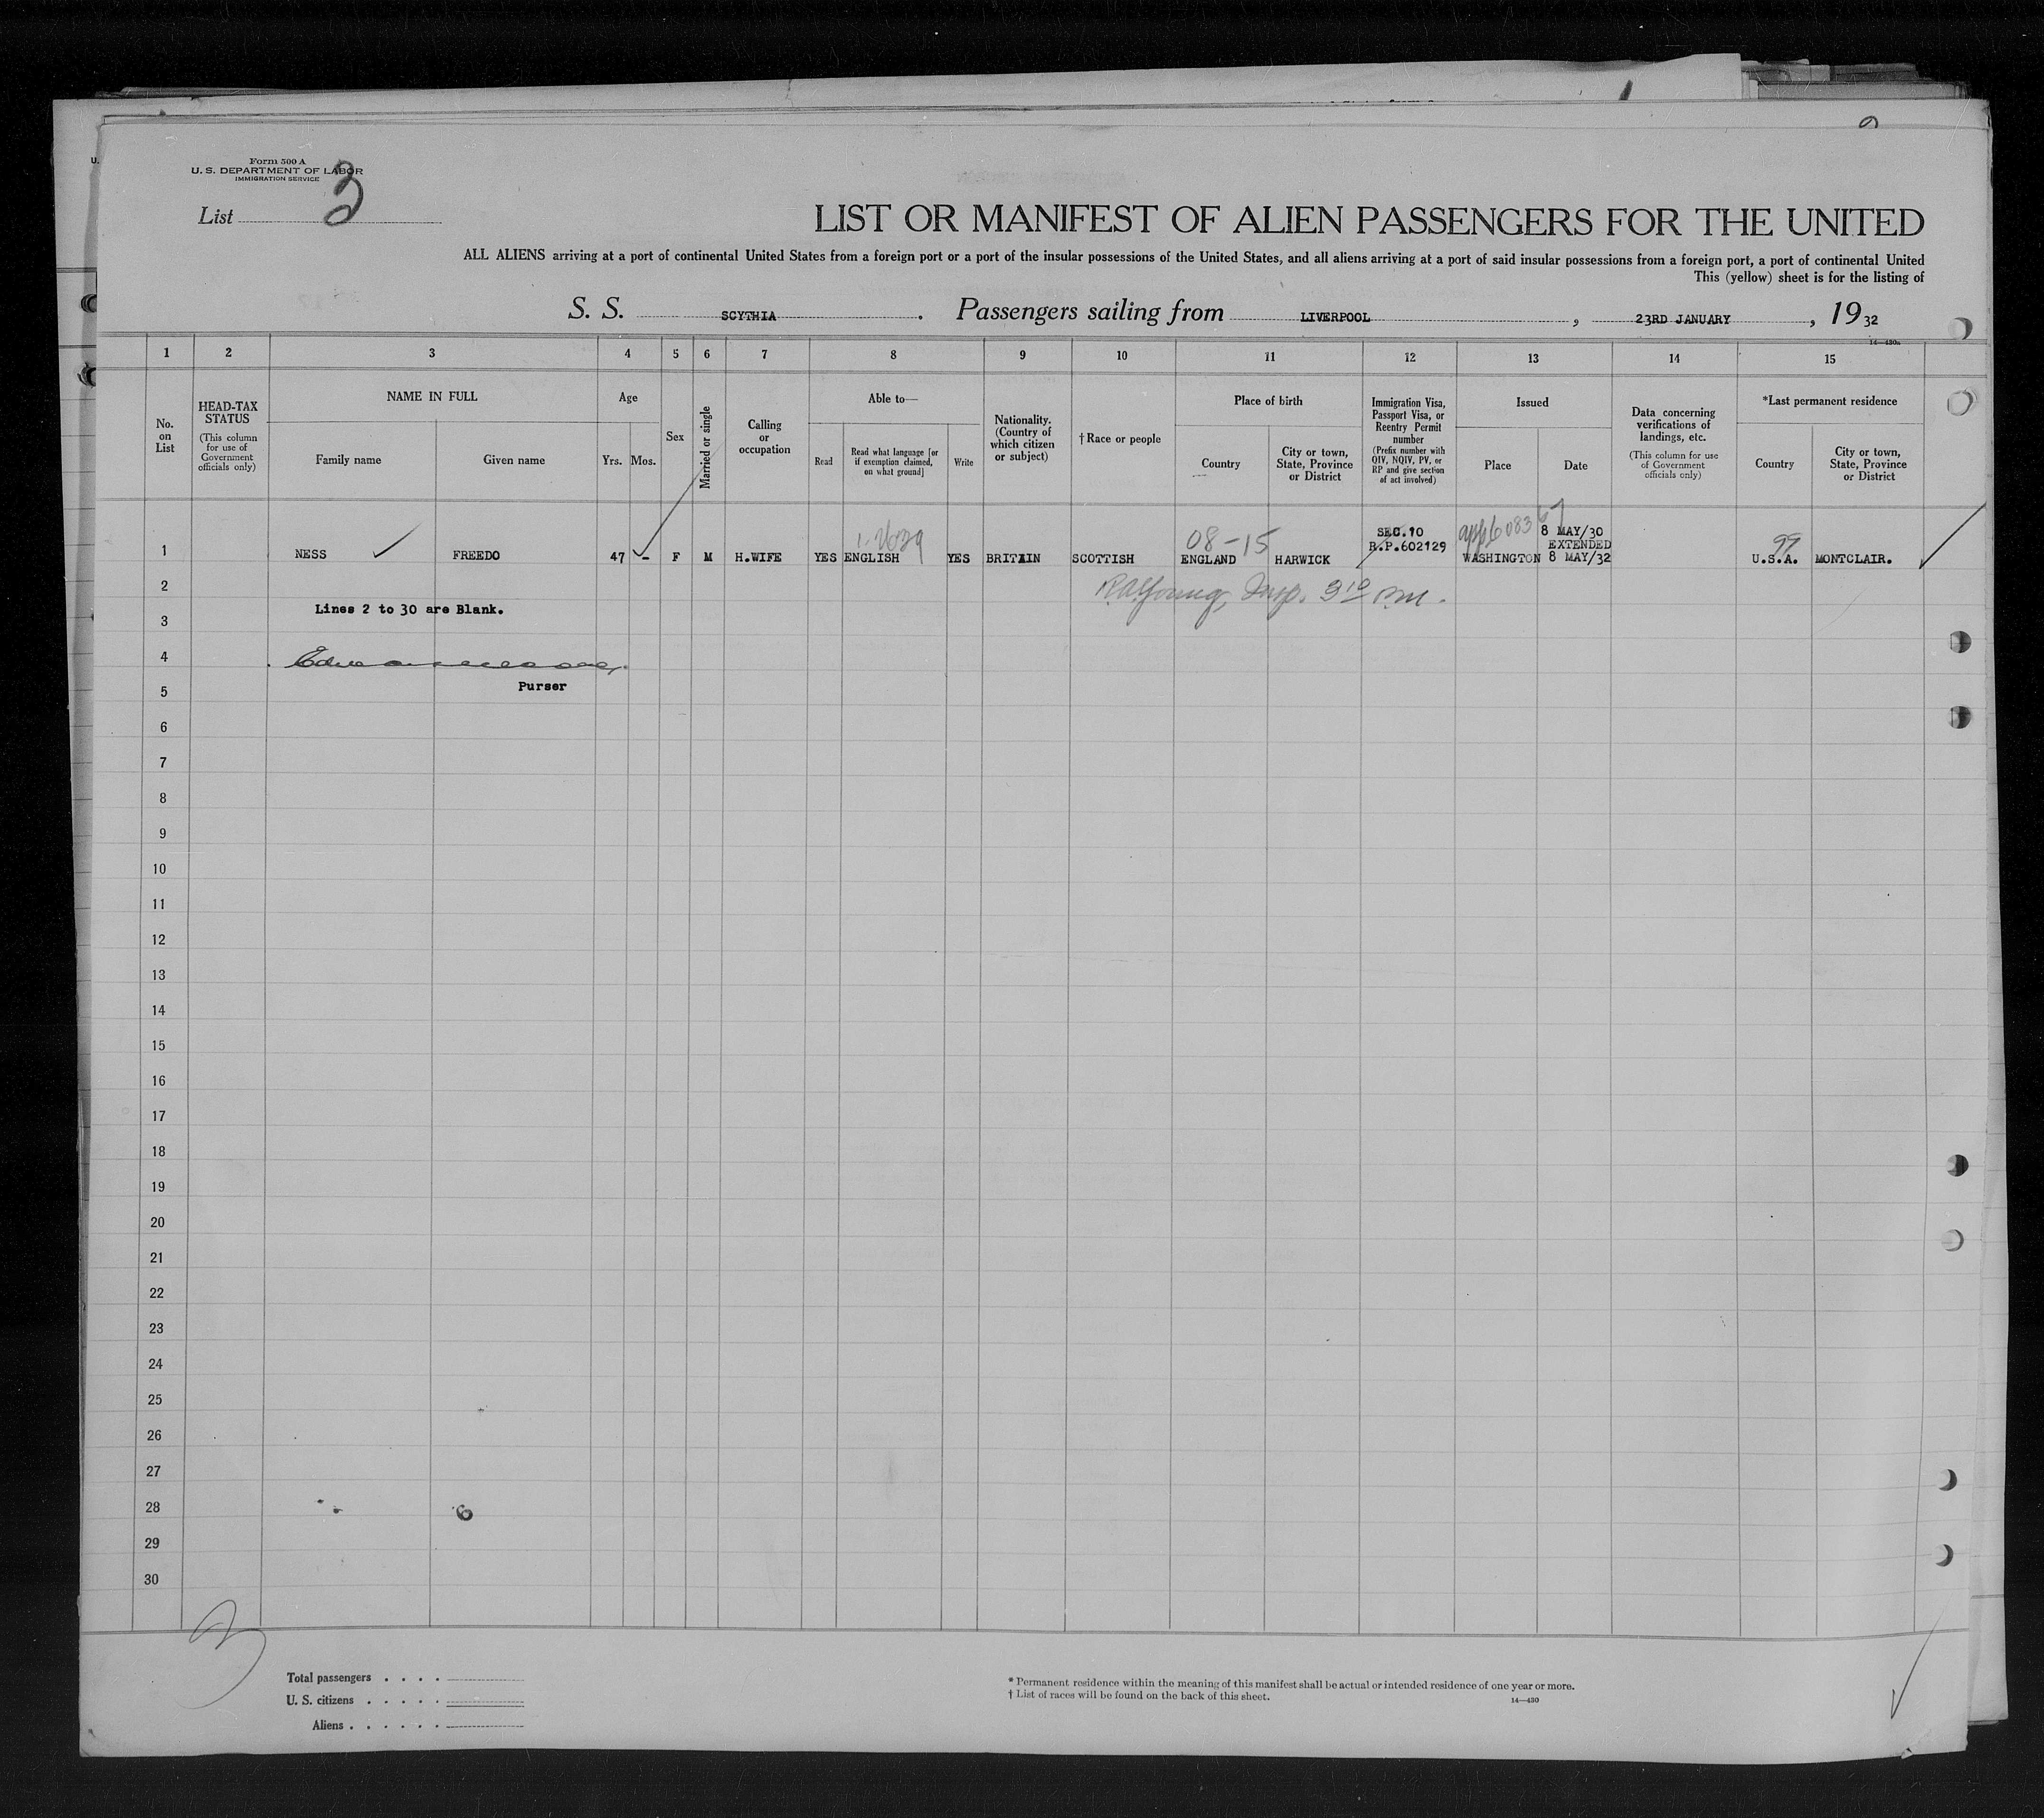 Form 500 A
U. S. DEPARTMENT OF LABOR
IMMIGRATION SERVICE
List 3
LIST OR MANIFEST OF ALIEN PASSENGERS FOR THE UNITED
ALL ALIENS arriving at a port of continental United States from a foreign port or a port of the insular possessions of the United States, and all aliens arriving at a port of said insular possessions from a foreign port, a port of continental United
This (yellow) sheet is for the listing of
S. S. SCYTHIA. Passengers sailing from LIVERPOOL, 23RD JANUARY, 1932
14—430a
1 2 3 4 5 6 7 8 9 10 11 12 13 14 15
No. on List
HEAD-TAX STATUS
(This column for use of Government officials only)
NAME IN FULL
Family name
Given name
Age
Yrs.
Mos.
Sex
Married or single
Calling or occupation
Able to—
Read
Read what language [or if exemption claimed, on what ground]
Write
Nationality. (Country of which citizen or subject)
†Race or people
Place of birth
Country
City or town, State, Province or District
Immigration Visa, Passport Visa, or Reentry Permit number
(Prefix number with QIV, NQIV, PV, or RP and give section of act involved)
Issued
Place
Date
Data concerning verifications of landings, etc.
(This column for use of Government officials only)
*Last permanent residence
Country
City or town, State, Province or District
08-15 SEC.10 8 MAY/30
R.P.602129 EXTENDED
99
1 NESS FREEDO 47 - F M H.WIFE YES ENGLISH YES BRITAIN SCOTTISH ENGLAND HARWICK WASHINGTON 8 MAY/32 U.S.A. MONTCLAIR.
2
Lines 2 to 30 are Blank.
3
4
Purser
5
6
7
8
9
10
11
12
13
14
15
16
17
18
19
20
21
22
23
24
25
26
27
28
29
30
Total passengers . . . .
U. S. citizens . . . . .
Aliens . . . . . .
* Permanent residence within the meaning of this manifest shall be actual or intended residence of one year or more.
† List of races will be found on the back of this sheet.
14—430